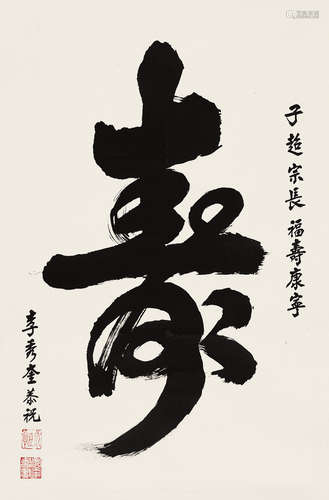 子超宗長 福壽康寧
壽
李秀奎恭祝